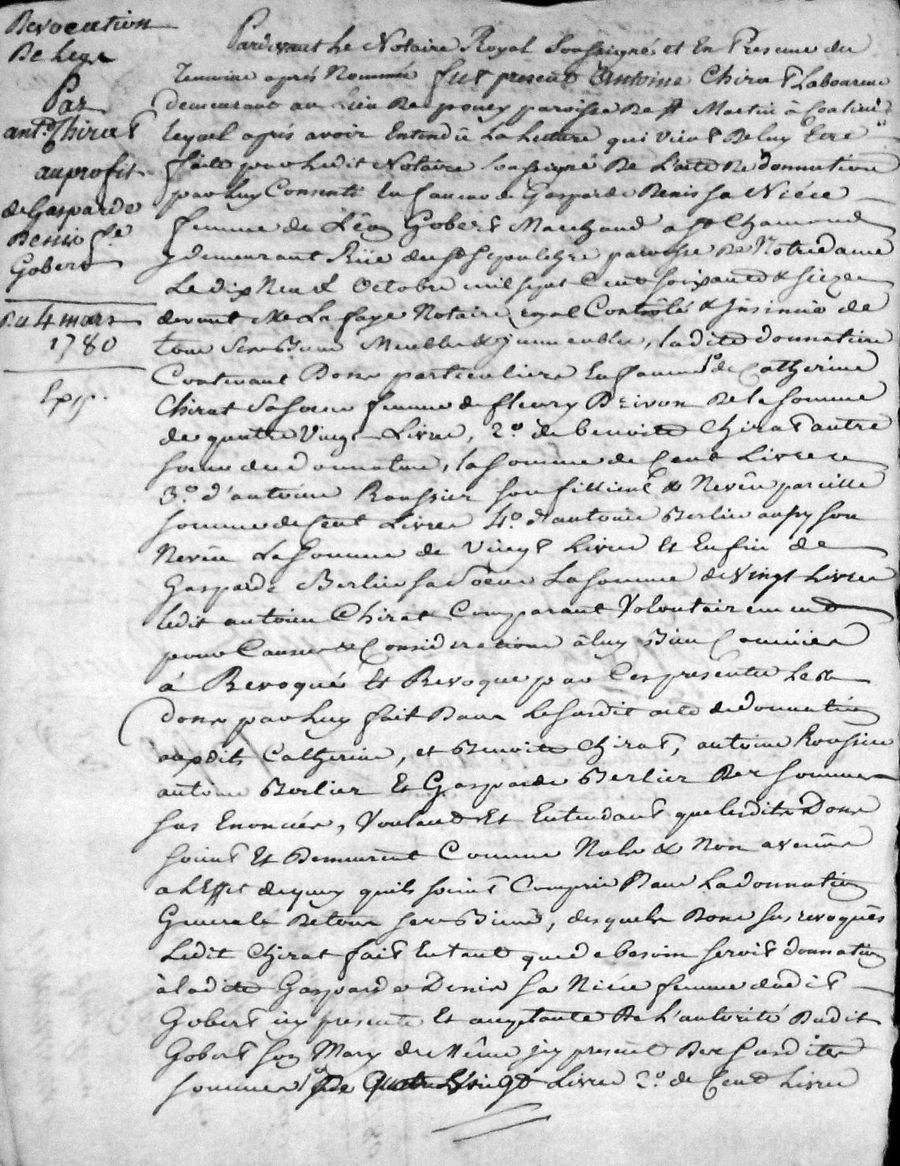 Revocation
De Legs
Par
ant.e Chirat
au profit
de Gasparde
Denis f.e
Gobert
Du 4 mars
1780
Exp.
Pardevant Le Notaire Royal soussigné et En Presence des
Temoins aprés Nommés fut present Antoine Chirat Laboureur
demeurant au Lieu De poney paroisse De St Martin à Coalieu
lequel aprés avoir Entendu La Lecture qui vient De luy Etre
faite par Ledit Notaire soussigné De L'acte De donnation
par luy Consenti En faveur de Gasparde Denis sa Niéce
femme de Léon Gobert Marchand a St Chamond
y demeurant Rüe du St Sepulchre paroisse De Notre dame
Le dix Neuf Octobre mil sept Cent soixante & seize
devant Me La faye Notaire Royal Contrôlé & Insinué de
tous ses Biens Meubles & immeubles, la dite donnation
Contenant Dons particuliers En faveur 1.o de Catherine
Chirat Sa soeur femme de fleury Drivon De la somme
de quatre Vingt Livres, 2.o de benoite Chirat autre
soeur du donnateur, la somme de Cent Livres
3.o d'antoine Roussier son fillieul & Neveu pareille
somme de Cent Livres 4.o d'antoine Berlier aussy son
Neveu La somme de Vingt Livres Et Enfin de
Gasparde Berlier sa soeur La somme de vingt Livres
ledit antoine Chirat Comparant Volontairement
pour Causes & Considerations à luy Bien Connües
à Revoqué Et Revoque par Ces presentes Les
dons par Luy fait Dans Le susdit acte de donnation
auxdits Catherine, et Benoite Chirat, antoine Roussier
antoine Berlier Et Gasparde Berlier Des sommes
sus Enoncées, Voulant Et Entendant que lesdits Dons
soient Et Demeurent Comme Nuls & Non avenüs
a L'Effet dequoy quils soient Compris Dans La donnation
Generale De tous ses Biens, desquels Dons sus revoqués
Ledit Chirat fait En tant que de besoin seroit donnation
à ladite Gasparde Denis sa Niéce femme dudit
Gobert icy presente Et acceptante De L'autorité Dudit
Gobert son Mary de Même icy present Des susdites
sommes 1.o De Quatre Vingt Livres 2.o de Cent Livres